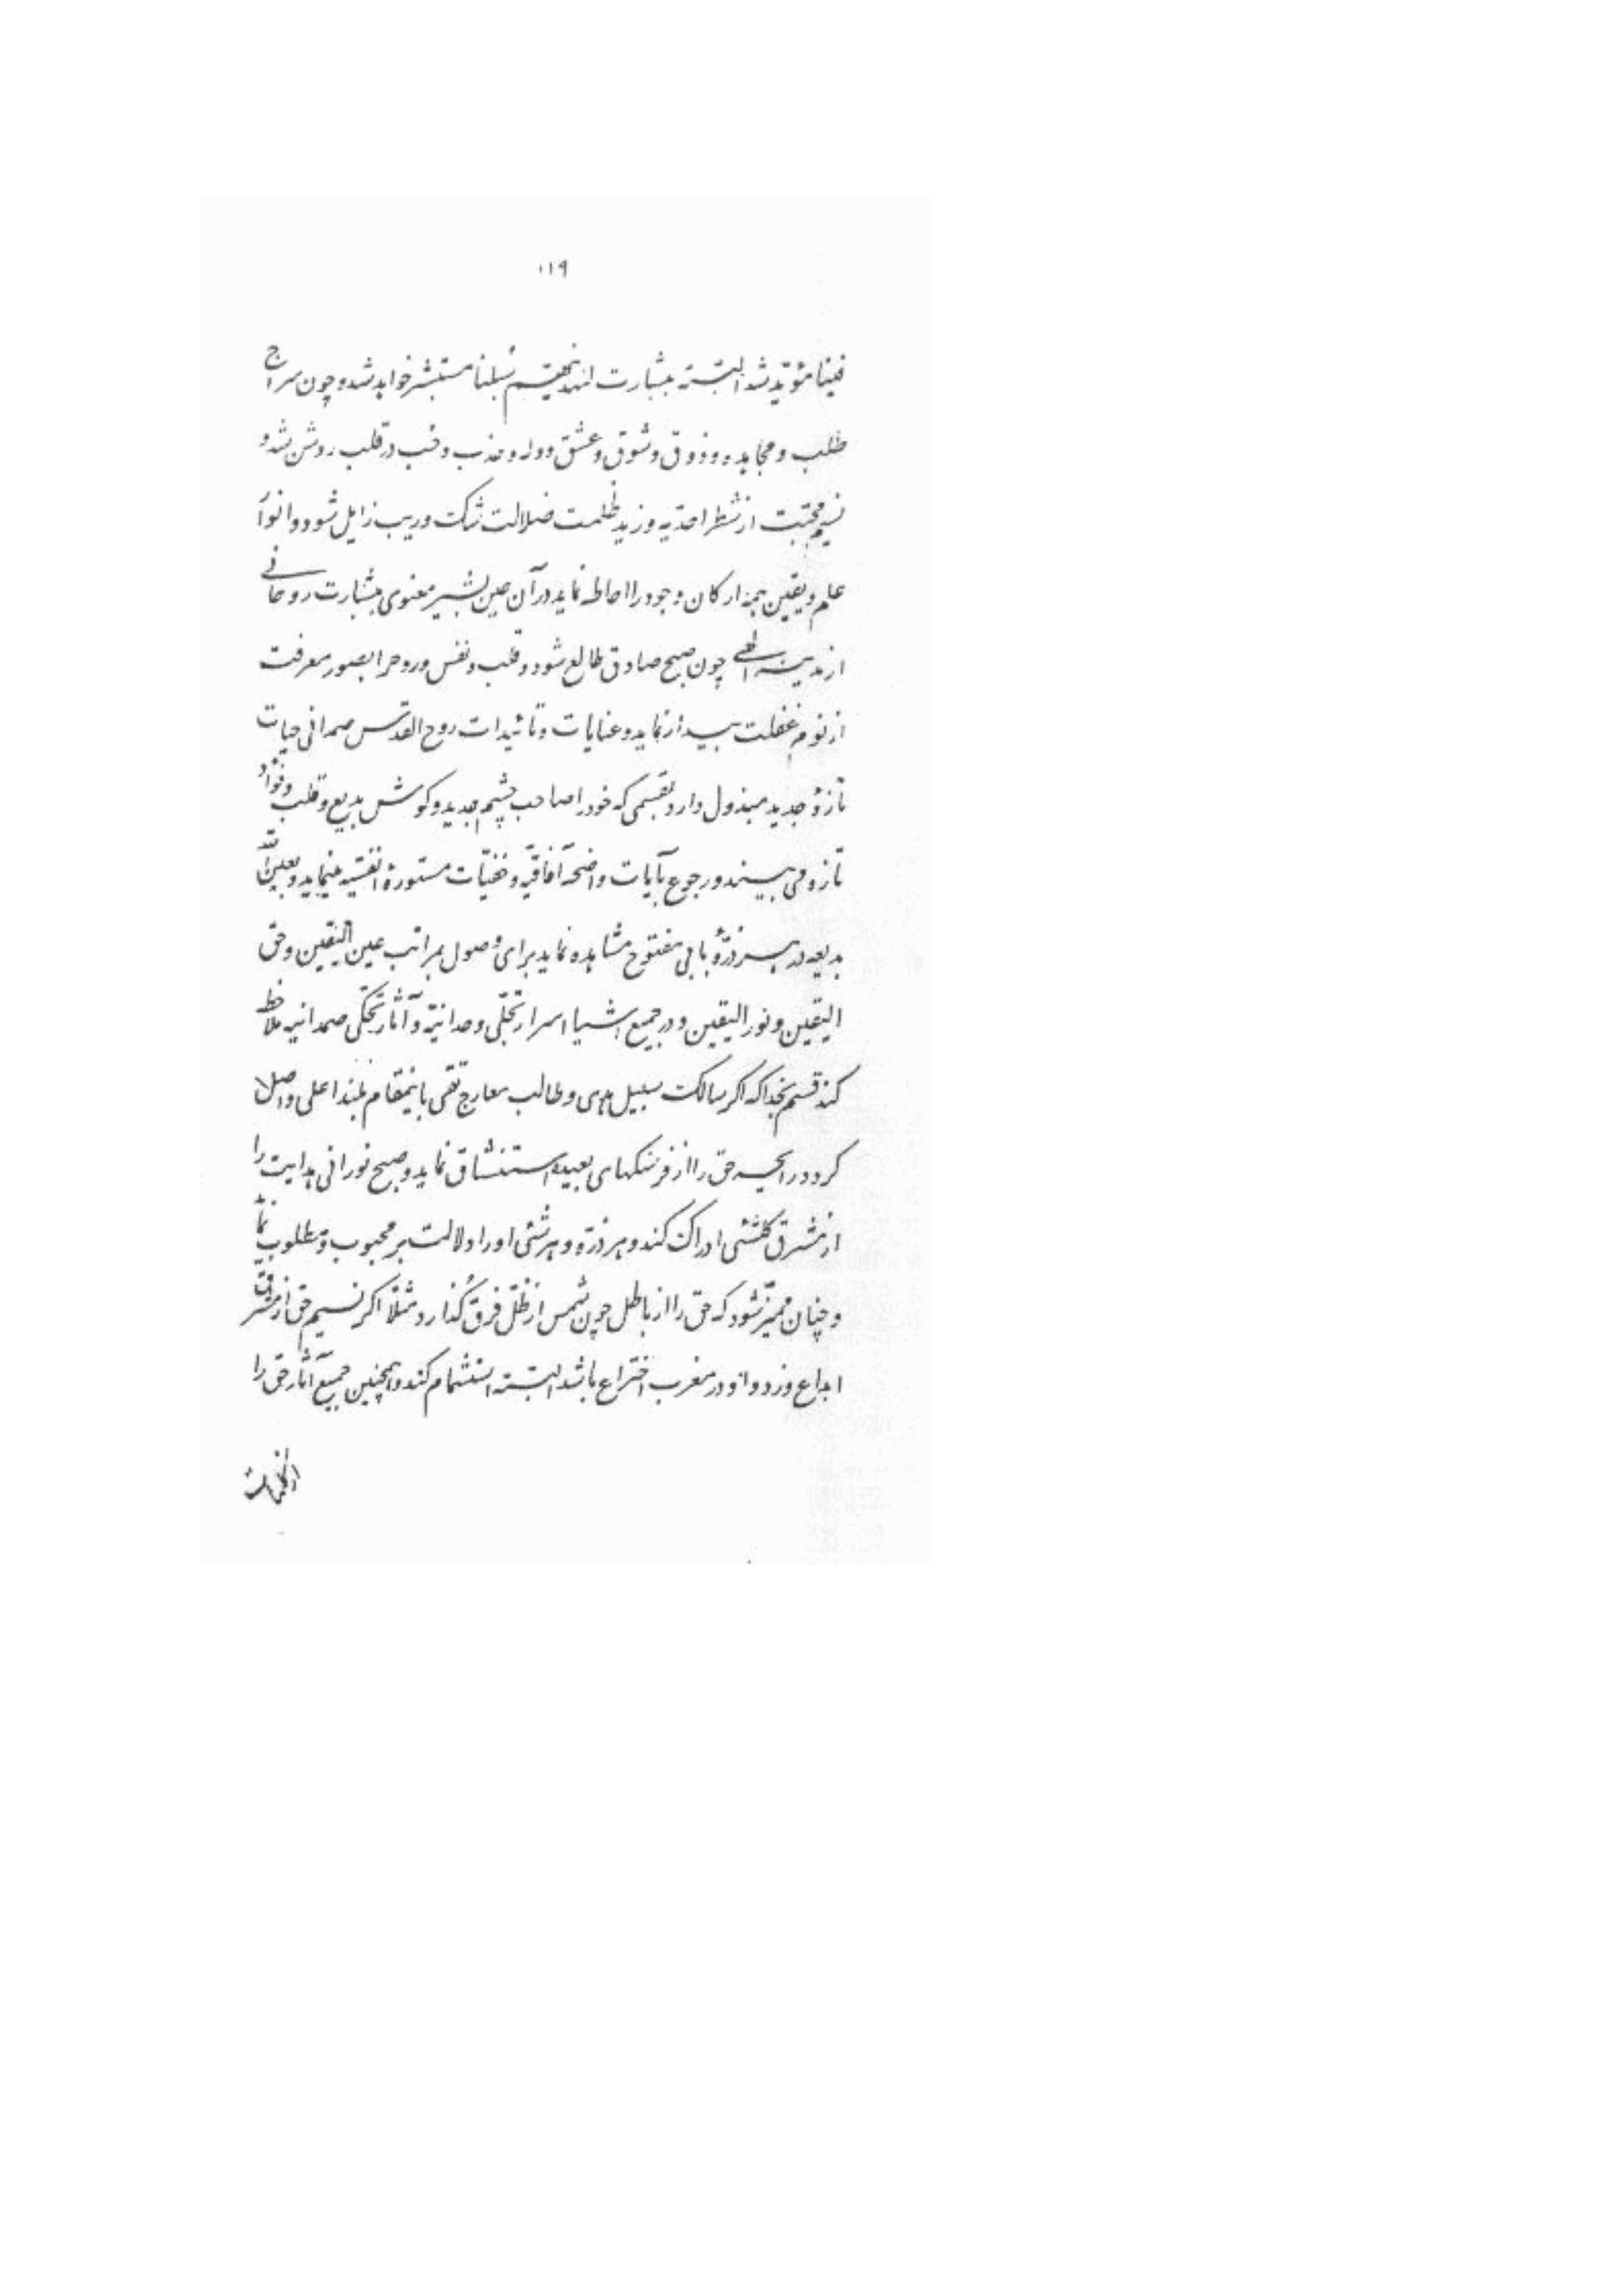 ۱۱۹
فینا مؤیّد شد البتّه ببشارت لنهدینّهم سُبلنا مستبشر خواهد شد و چون سراج
طلب و مجاهده و ذوق و شوق و عشق و وله و جذب و حُب در قلب روشن شد و
نسیم محبّت از شطر احدیّه وزید ظلمت ضلالت شک و ریب زایل شود و انوار
علم و یقین همه ارکان وجود را احاطه نماید در آن حین بشیر معنوی ببشارت روحانی
از مدینه الهی چون صبح صادق طالع شود و قلب و نفس و روح را بصور معرفت
از نوم غفلت بیدار نماید و عنایات و تأئیدات روح القدس صمدانی حیات
تازهٔ جدید مبذول دارد بقسمی که خود را صاحب چشم جدید و گوش بدیع و قلب و فؤاد
تازه می بیند و رجوع بآیات واضحهٔ آفاقیّه و خفیّات مستورهٔ انفسیّه مینماید و بعین اللّه
بدیعه در هر ذرّهٔ بابی مفتوح مشاهده نماید برای وصول بمراتب عین الیقین و حق
الیقین و نور الیقین و در جمیع اشیا اسرار تجلّی وحدانیّه و آثار تجلّی صمدانیه ملاحظه
کند قسم بخدا که اگر سالک سبیل هدی و طالب معارج تقی باینمقام بلند اعلی واصل
گردد رایحه حق را از فرسنگهای بعیده استنشاق نماید و صبح نورانی هدایت را
از مشرق کلشئی ادراک کند و هر ذرّه و هر شئی او را دلالت بر محبوب و مطلوب نماید
و چنان ممیّز شود که حق را از باطل چون شمس از ظلّ فرق گذارد مثلًا اگر نسیم حق از مشرق
ابداع وزد و او در مغرب اختراع باشد البتّه استشمام کند و همچنین جمیع آثار حق را
از کلمات